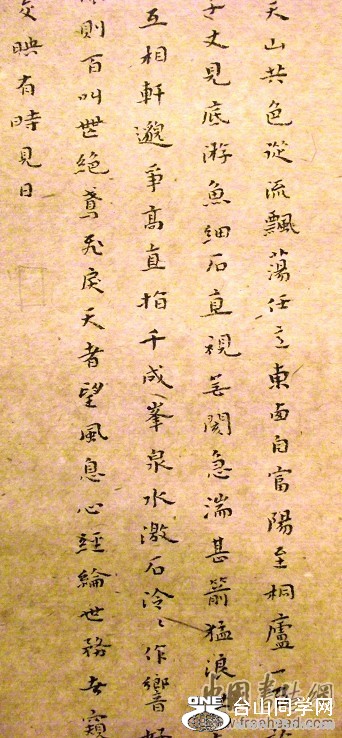 天山共色從流飄蕩任意東西自富陽至桐廬一百
千丈見底游魚細石直視無閡急湍甚箭猛浪
互相軒邈爭高直指千成峯泉水激石泠〻作響好
則百叫無絕鳶飛戾天者望風息心經綸世務者窺
交映有時見日
中国书法网
ONE
台山同学网